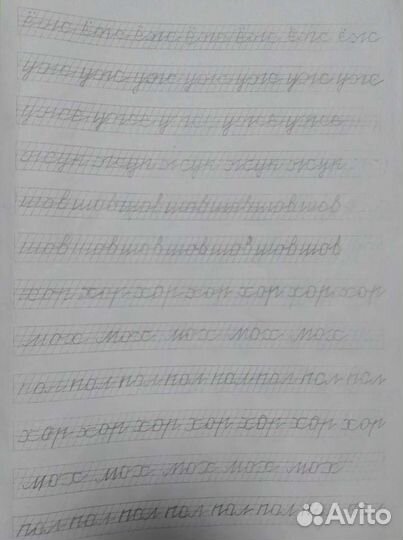 ёж ёж ёж ёж ёж ёж ёж
уж уж уж уж уж уж уж
уже уже уже уже уже
жук жук жук жук жук
шов шов шов шов шов шов шов
шов шов шов шов шов шов шов
хор хор хор хор хор хор хор
мох мох мох мох мох
пол пол пол пол пол пол пол пол
хор хор хор хор хор хор хор
мох мох мох мох мох
пол пол пол пол пол пол
Avito